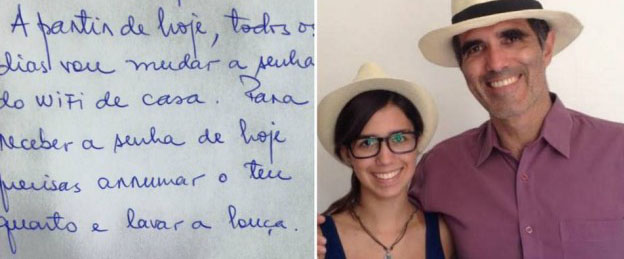 A partir de hoje, todos os
dias vou mudar a senha
do WiFi de casa. Para
receber a senha de hoje
precisas arrumar o teu
quarto e lavar a louça.